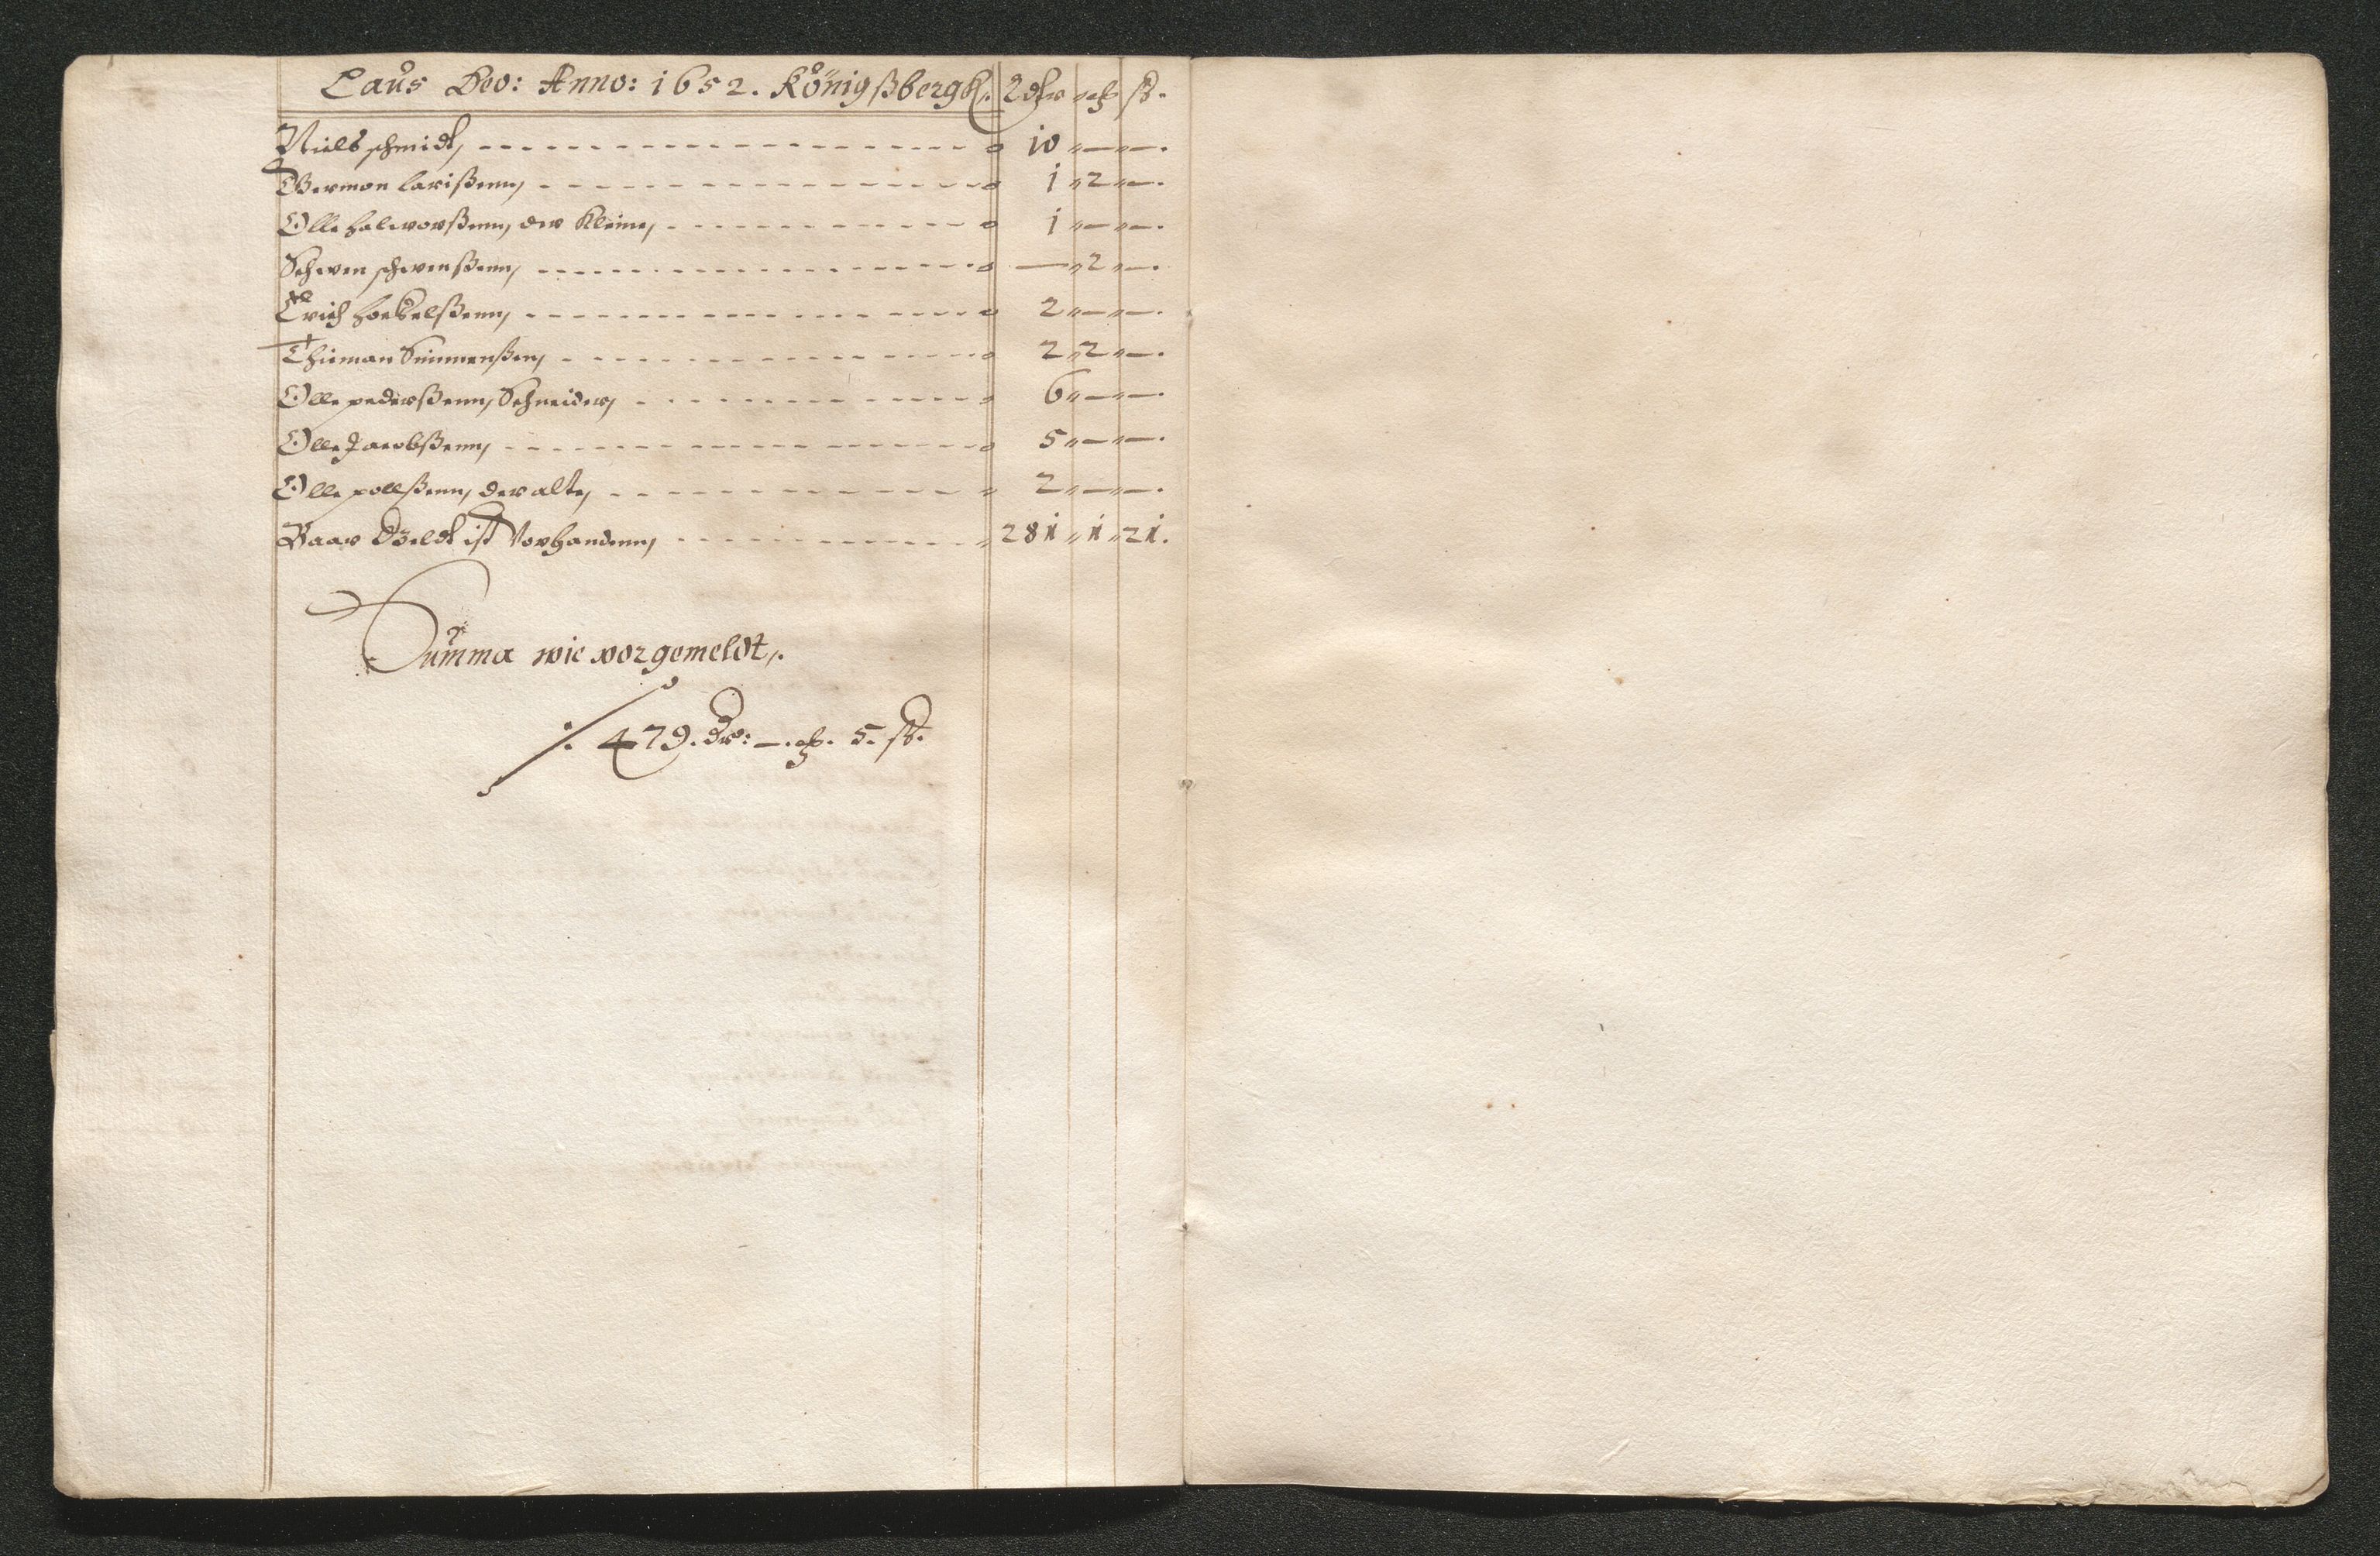 Laus Deo: Anno: 1652. Königßbergk. Rdhr ort ß.
Niels schmidt, 10 „—„—.
Germon larißenn, 1 „2„—.
Olle halvorßenn, der Kleine, 1 „—„—.
Schwen schwenßenn, —„2„—.
Erich hoekelßenn, 2„—„—.
Thieman Simmenßen, 2„2„—.
Olle pederßenn, Schneider, 6„—„—.
Olle Jacobßenn, 5„—„—.
Olle pollßenn, der alte, 2„—„—.
Baar Göeldt ist Vorhandenn, 281„1„21.
Summa wie vorgemeldt,.
479. Dr: —. ort. 5. ß.